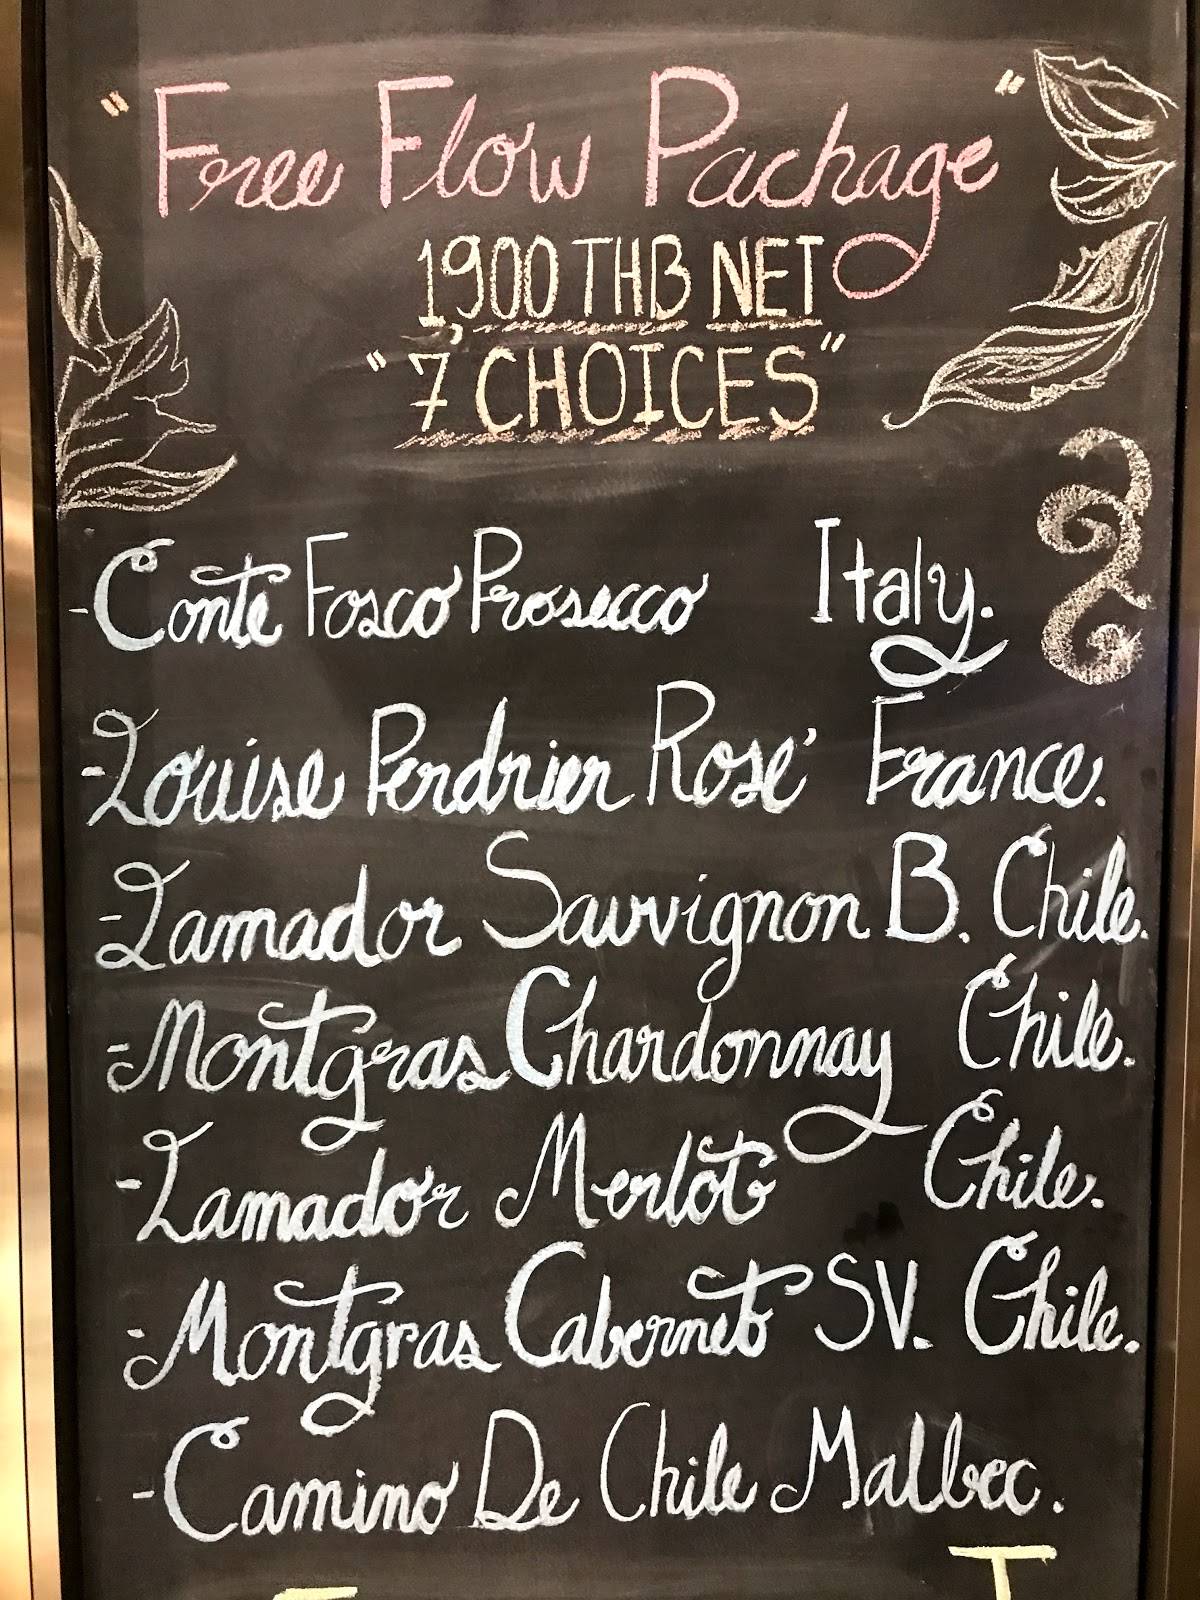 "Free Flow Package"
1,900 THB NET
"7 CHOICES"
-Conte Fosco Prosecco Italy.
-Louise Perdrier Rosé France.
-Lamador Sauvignon B. Chile.
-Montgras Chardonnay Chile.
-Lamador Merlot Chile.
-Montgras Cabernet SV. Chile.
-Camino De Chile Malbec.